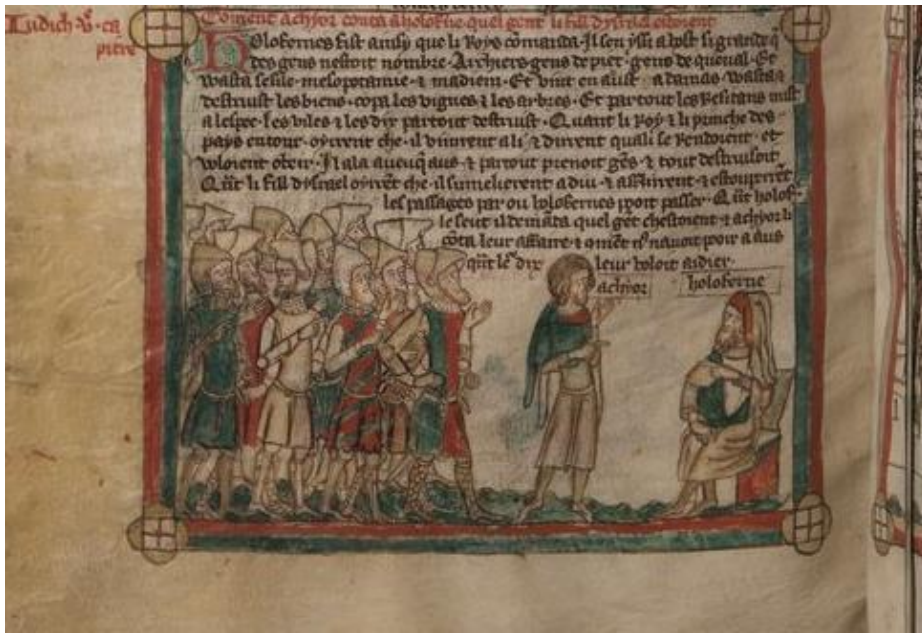 Judich · v · ca
pitre
Coment achyor conta a holofne quel gent li fill dysrael estoient
Holofernes fist ainsy que li Roys cōmanda · Il sen yssi a lost si grande q̄
des gens nestoit nombre · Archiers gens de piet · gens de queual · Et
wasta sesile · mesopotamie · ⁊ madiem · Et vint en aust a damas wasta ⁊
destruist les biens · copa les vignes ⁊ les arbres · Et partout les Resitans mist
a lespee · les viles ⁊ les dix partout destruist · Quant li Roy ⁊ li prinche des ·
pays entour · oyrent che · il vinrent a li · ⁊ dirent quali se Rendoient · et
voloient obeir · Il ala auenq̄ aus · ⁊ partout prenoit gēs · ⁊ tout destruisoit
Q̄nt li fill dysrael oyrēt che · il sumelierent a diu · ⁊ ⁊ estouperēt
les passages par ou holofernes pooit passer · Q̄nt holof·
le seut il demāda quel gēt chestoient · ⁊ achyor li
cōta leur affaire · ⁊ nauoit pooir a aus
q̄nt le dix leur voloit aidier ·
achyor
holoferne